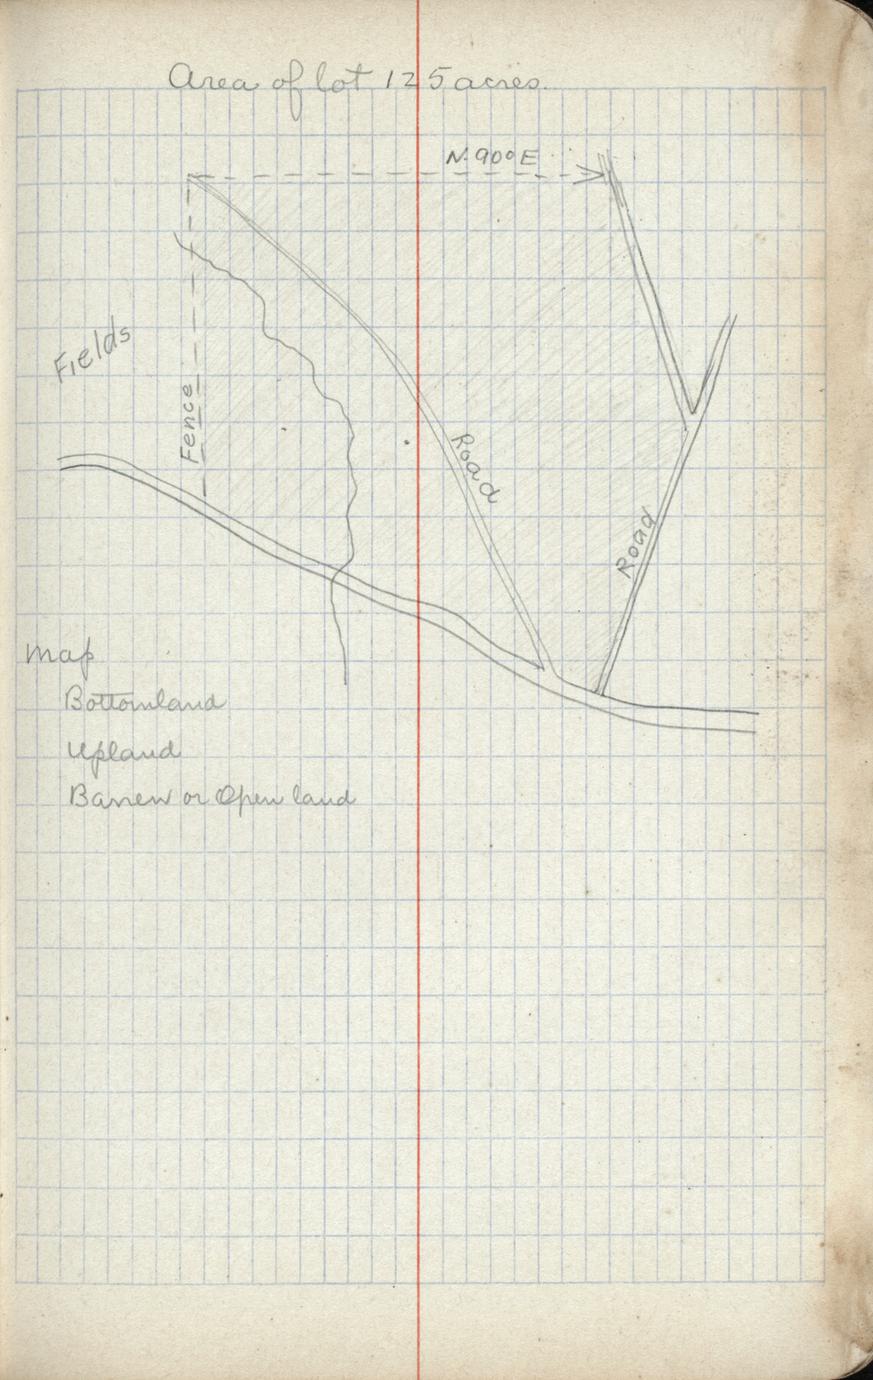 Area of lot 125 acres.
N. 90° E
Fields
Fence
Road
Road
Map
Bottomland
Upland
Barren or Open land